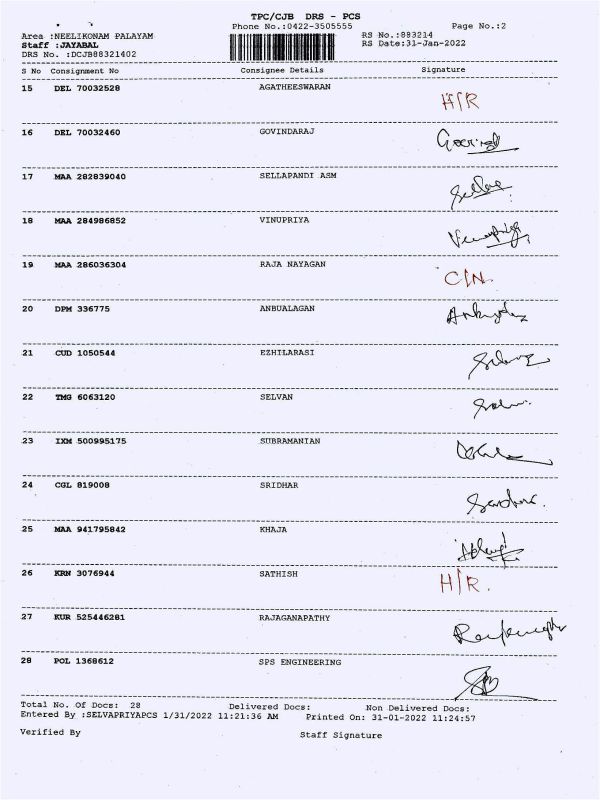 TPC/CJB DRS - PCS
Phone No.:0422-3505555 Page No.:2
Area :NEELIKONAM PALAYAM RS No.:883214
Staff :JAYABAL RS Date:31-Jan-2022
DRS No. :DCJB88321402
S No Consignment No Consignee Details Signature
15 DEL 70032528 AGATHEESWARAN H/R
16 DEL 70032460 GOVINDARAJ
17 MAA 282839040 SELLAPANDI ASM
18 MAA 284986852 VINUPRIYA
19 MAA 286036304 RAJA NAYAGAN C/N
20 DPM 336775 ANBUALAGAN
21 CUD 1050544 EZHILARASI
22 TMG 6063120 SELVAN
23 IXM 500995175 SUBRAMANIAN
24 CGL 819008 SRIDHAR
25 MAA 941795842 KHAJA
26 KRN 3076944 SATHISH H/R.
27 KUR 525446281 RAJAGANAPATHY
28 POL 1368612 SPS ENGINEERING
Total No. Of Docs: 28 Delivered Docs: Non Delivered Docs:
Entered By :SELVAPRIYAPCS 1/31/2022 11:21:36 AM Printed On: 31-01-2022 11:24:57
Verified By Staff Signature